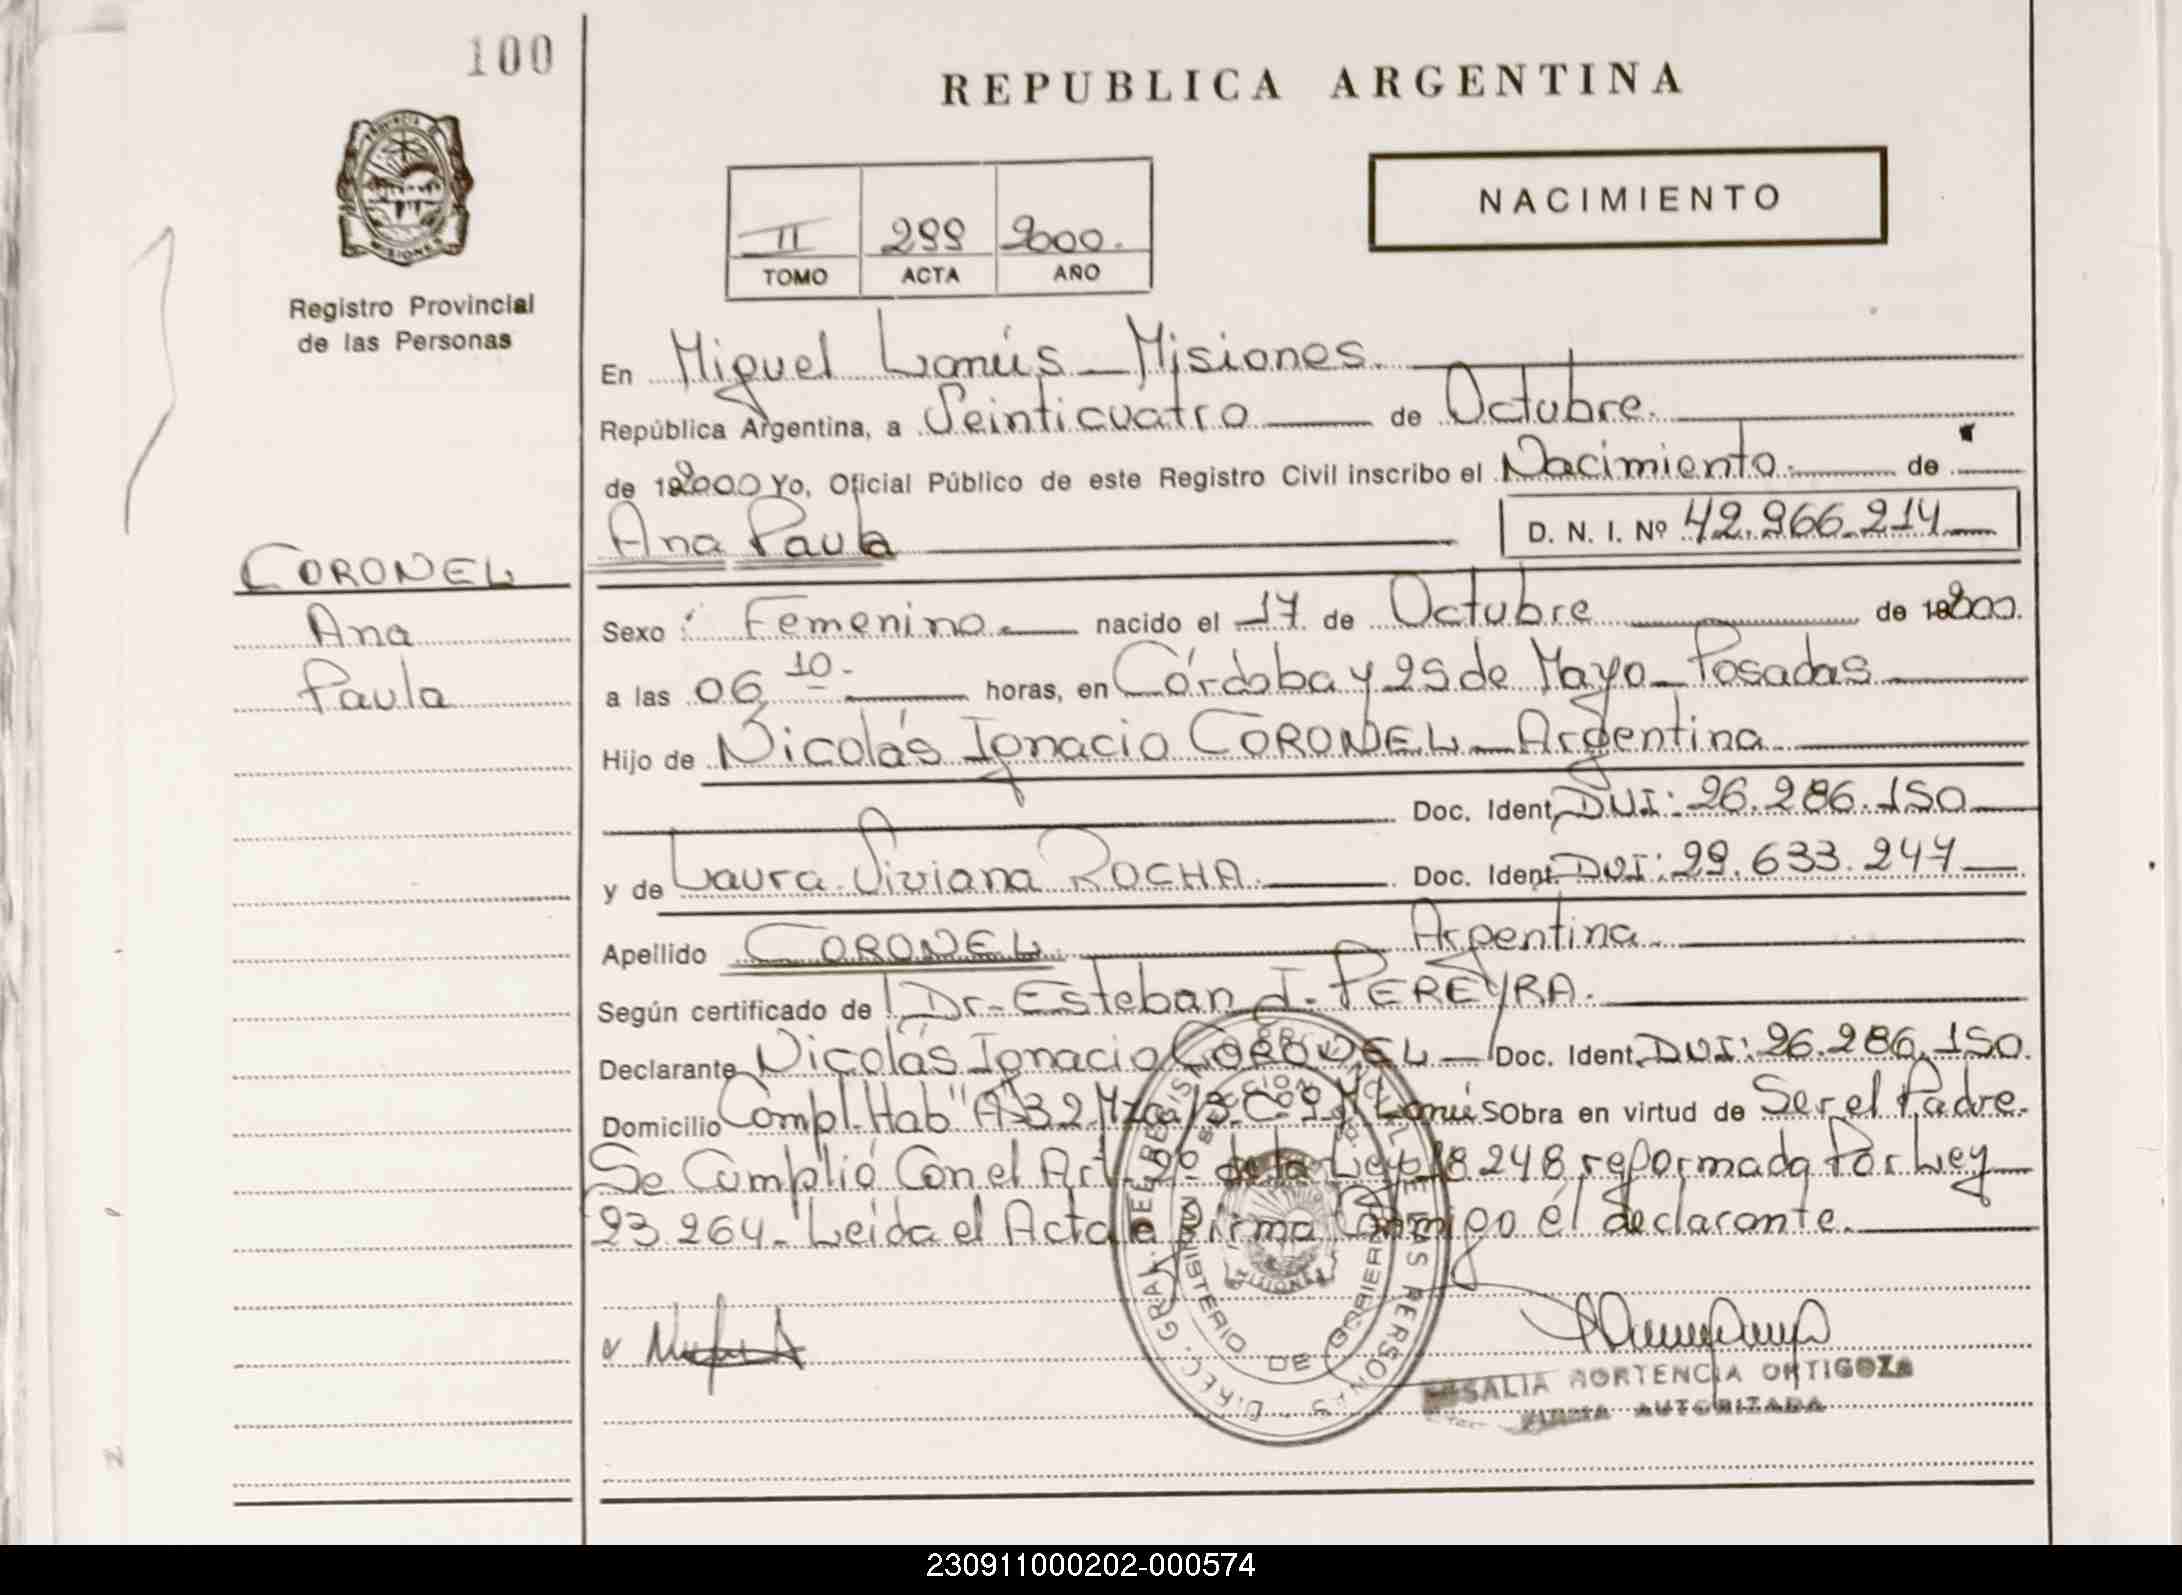 100
REPUBLICA ARGENTINA
NACIMIENTO
II 299 2000.
TOMO ACTA AÑO
PROVINCIA DE MISIONES
Registro Provincial
de las Personas
En Miguel Lanús - Misiones.
República Argentina, a Veinticuatro de Octubre.
de 192000 Yo, Oficial Público de este Registro Civil inscribo el Nacimiento. de
Ana Paula D. N. I. Nº 42.966.214
CORONEL
Ana
Paula
Sexo Femenino. nacido el 17 de Octubre de 192000.
a las 06 10- horas, en Córdoba y 25 de Mayo - Posadas
Hijo de Nicolás Ignacio CORONEL - Argentina
Doc. Ident. DNI: 26.286.150
y de Laura Viviana ROCHA. Doc. Ident. DNI: 29.633.247
Argentina
Apellido CORONEL
Según certificado de Dr. Esteban J. PEREYRA.
Declarante Nicolás Ignacio CORONEL - Doc. Ident. DNI: 26.286.150.
Domicilio Compl. Hab "A" 32 Mza 13 C: 9 M. Lanús Obra en virtud de Ser el Padre.
Se Cumplió Con el Art. 2º de la Ley 18.248 reformada Por Ley
23.264 - Leída el Acta la Firma Conmigo él declarante.
DIREC. GRAL. DEL REGISTRO PROVINCIAL DE LAS PERSONAS
MINISTERIO DE GOBIERNO
MISIONES
ROSALIA HORTENCIA ORTIGOZA
FIRMA AUTORIZADA
230911000202-000574